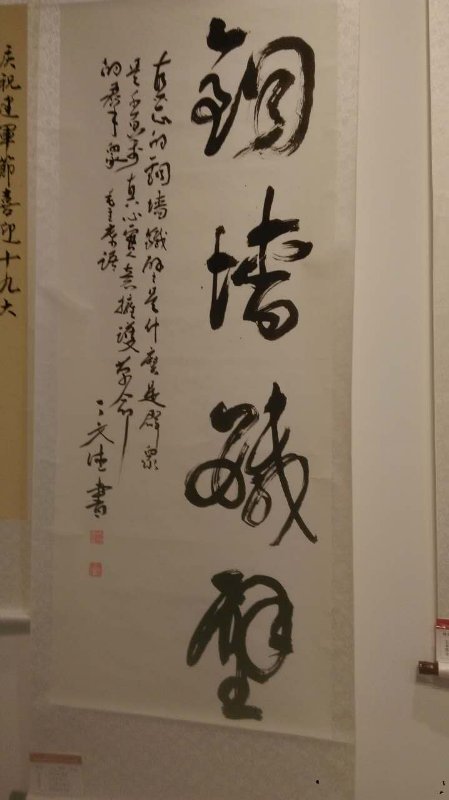 銅墙鐵壁
真正的銅墙鐵壁是什麼是群衆
是千百萬真心實意擁護革命
的群衆 毛主席語
書
庆祝建軍節喜迎十九大